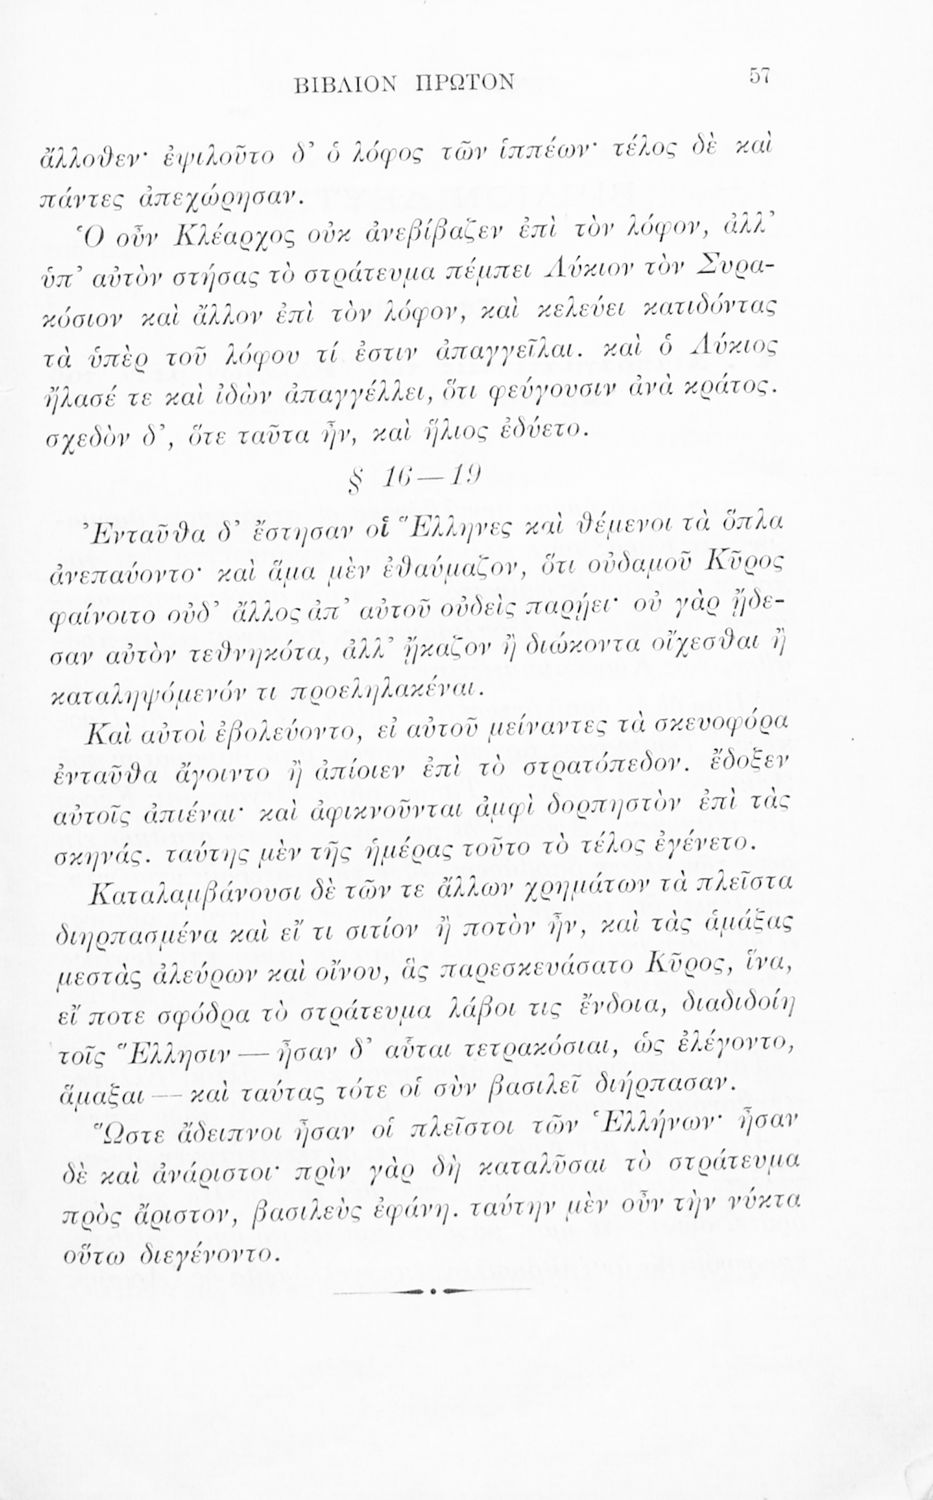 ΒΙΒΛΙΟΝ ΠΡΩΤΟΝ 57
ἄλλοθεν· ἐψιλοῦτο δ’ ὁ λόφος τῶν ἱππέων· τέλος δὲ καὶ
πάντες ἀπεχώρησαν.
Ὁ οὖν Κλέαρχος οὐκ ἀνεβίβαζεν ἐπὶ τὸν λόφον, ἀλλ’
ὑπ’ αὐτὸν στήσας τὸ στράτευμα πέμπει Λύκιον τὸν Συρα-
κόσιον καὶ ἄλλον ἐπὶ τὸν λόφον, καὶ κελεύει κατιδόντας
τὰ ὑπὲρ τοῦ λόφου τί ἐστιν ἀπαγγεῖλαι. καὶ ὁ Λύκιος
ἤλασέ τε καὶ ἰδὼν ἀπαγγέλλει, ὅτι φεύγουσιν ἀνὰ κράτος.
σχεδὸν δ’, ὅτε ταῦτα ἦν, καὶ ἥλιος ἐδύετο.
§ 16—19
Ἐνταῦθα δ’ ἔστησαν οἱ Ἕλληνες καὶ θέμενοι τὰ ὅπλα
ἀνεπαύοντο· καὶ ἅμα μὲν ἐθαύμαζον, ὅτι οὐδαμοῦ Κῦρος
φαίνοιτο οὐδ’ ἄλλος ἀπ’ αὐτοῦ οὐδεὶς παρῄει· οὐ γὰρ ᾔδε-
σαν αὐτὸν τεθνηκότα, ἀλλ’ ᾔκαζον ἢ διώκοντα οἴχεσθαι ἢ
καταληψόμενόν τι προεληλακέναι.
Καὶ αὐτοὶ ἐβολεύοντο, εἰ αὐτοῦ μείναντες τὰ σκευοφόρα
ἐνταῦθα ἄγοιντο ἢ ἀπίοιεν ἐπὶ τὸ στρατόπεδον. ἔδοξεν
αὐτοῖς ἀπιέναι· καὶ ἀφικνοῦνται ἀμφὶ δορπηστὸν ἐπὶ τὰς
σκηνάς. ταύτης μὲν τῆς ἡμέρας τοῦτο τὸ τέλος ἐγένετο.
Καταλαμβάνουσι δὲ τῶν τε ἄλλων χρημάτων τὰ πλεῖστα
διηρπασμένα καὶ εἴ τι σιτίον ἢ ποτὸν ἦν, καὶ τὰς ἁμάξας
μεστὰς ἀλεύρων καὶ οἴνου, ἃς παρεσκευάσατο Κῦρος, ἵνα,
εἴ ποτε σφόδρα τὸ στράτευμα λάβοι τις ἔνδοια, διαδιδοίη
τοῖς Ἕλλησιν — ἦσαν δ’ αὗται τετρακόσιαι, ὡς ἐλέγοντο,
ἅμαξαι — καὶ ταύτας τότε οἱ σὺν βασιλεῖ διήρπασαν.
Ὥστε ἄδειπνοι ἦσαν οἱ πλεῖστοι τῶν Ἑλλήνων· ἦσαν
δὲ καὶ ἀνάριστοι· πρὶν γὰρ δὴ καταλῦσαι τὸ στράτευμα
πρὸς ἄριστον, βασιλεὺς ἐφάνη. ταύτην μὲν οὖν τὴν νύκτα
οὕτω διεγένοντο.